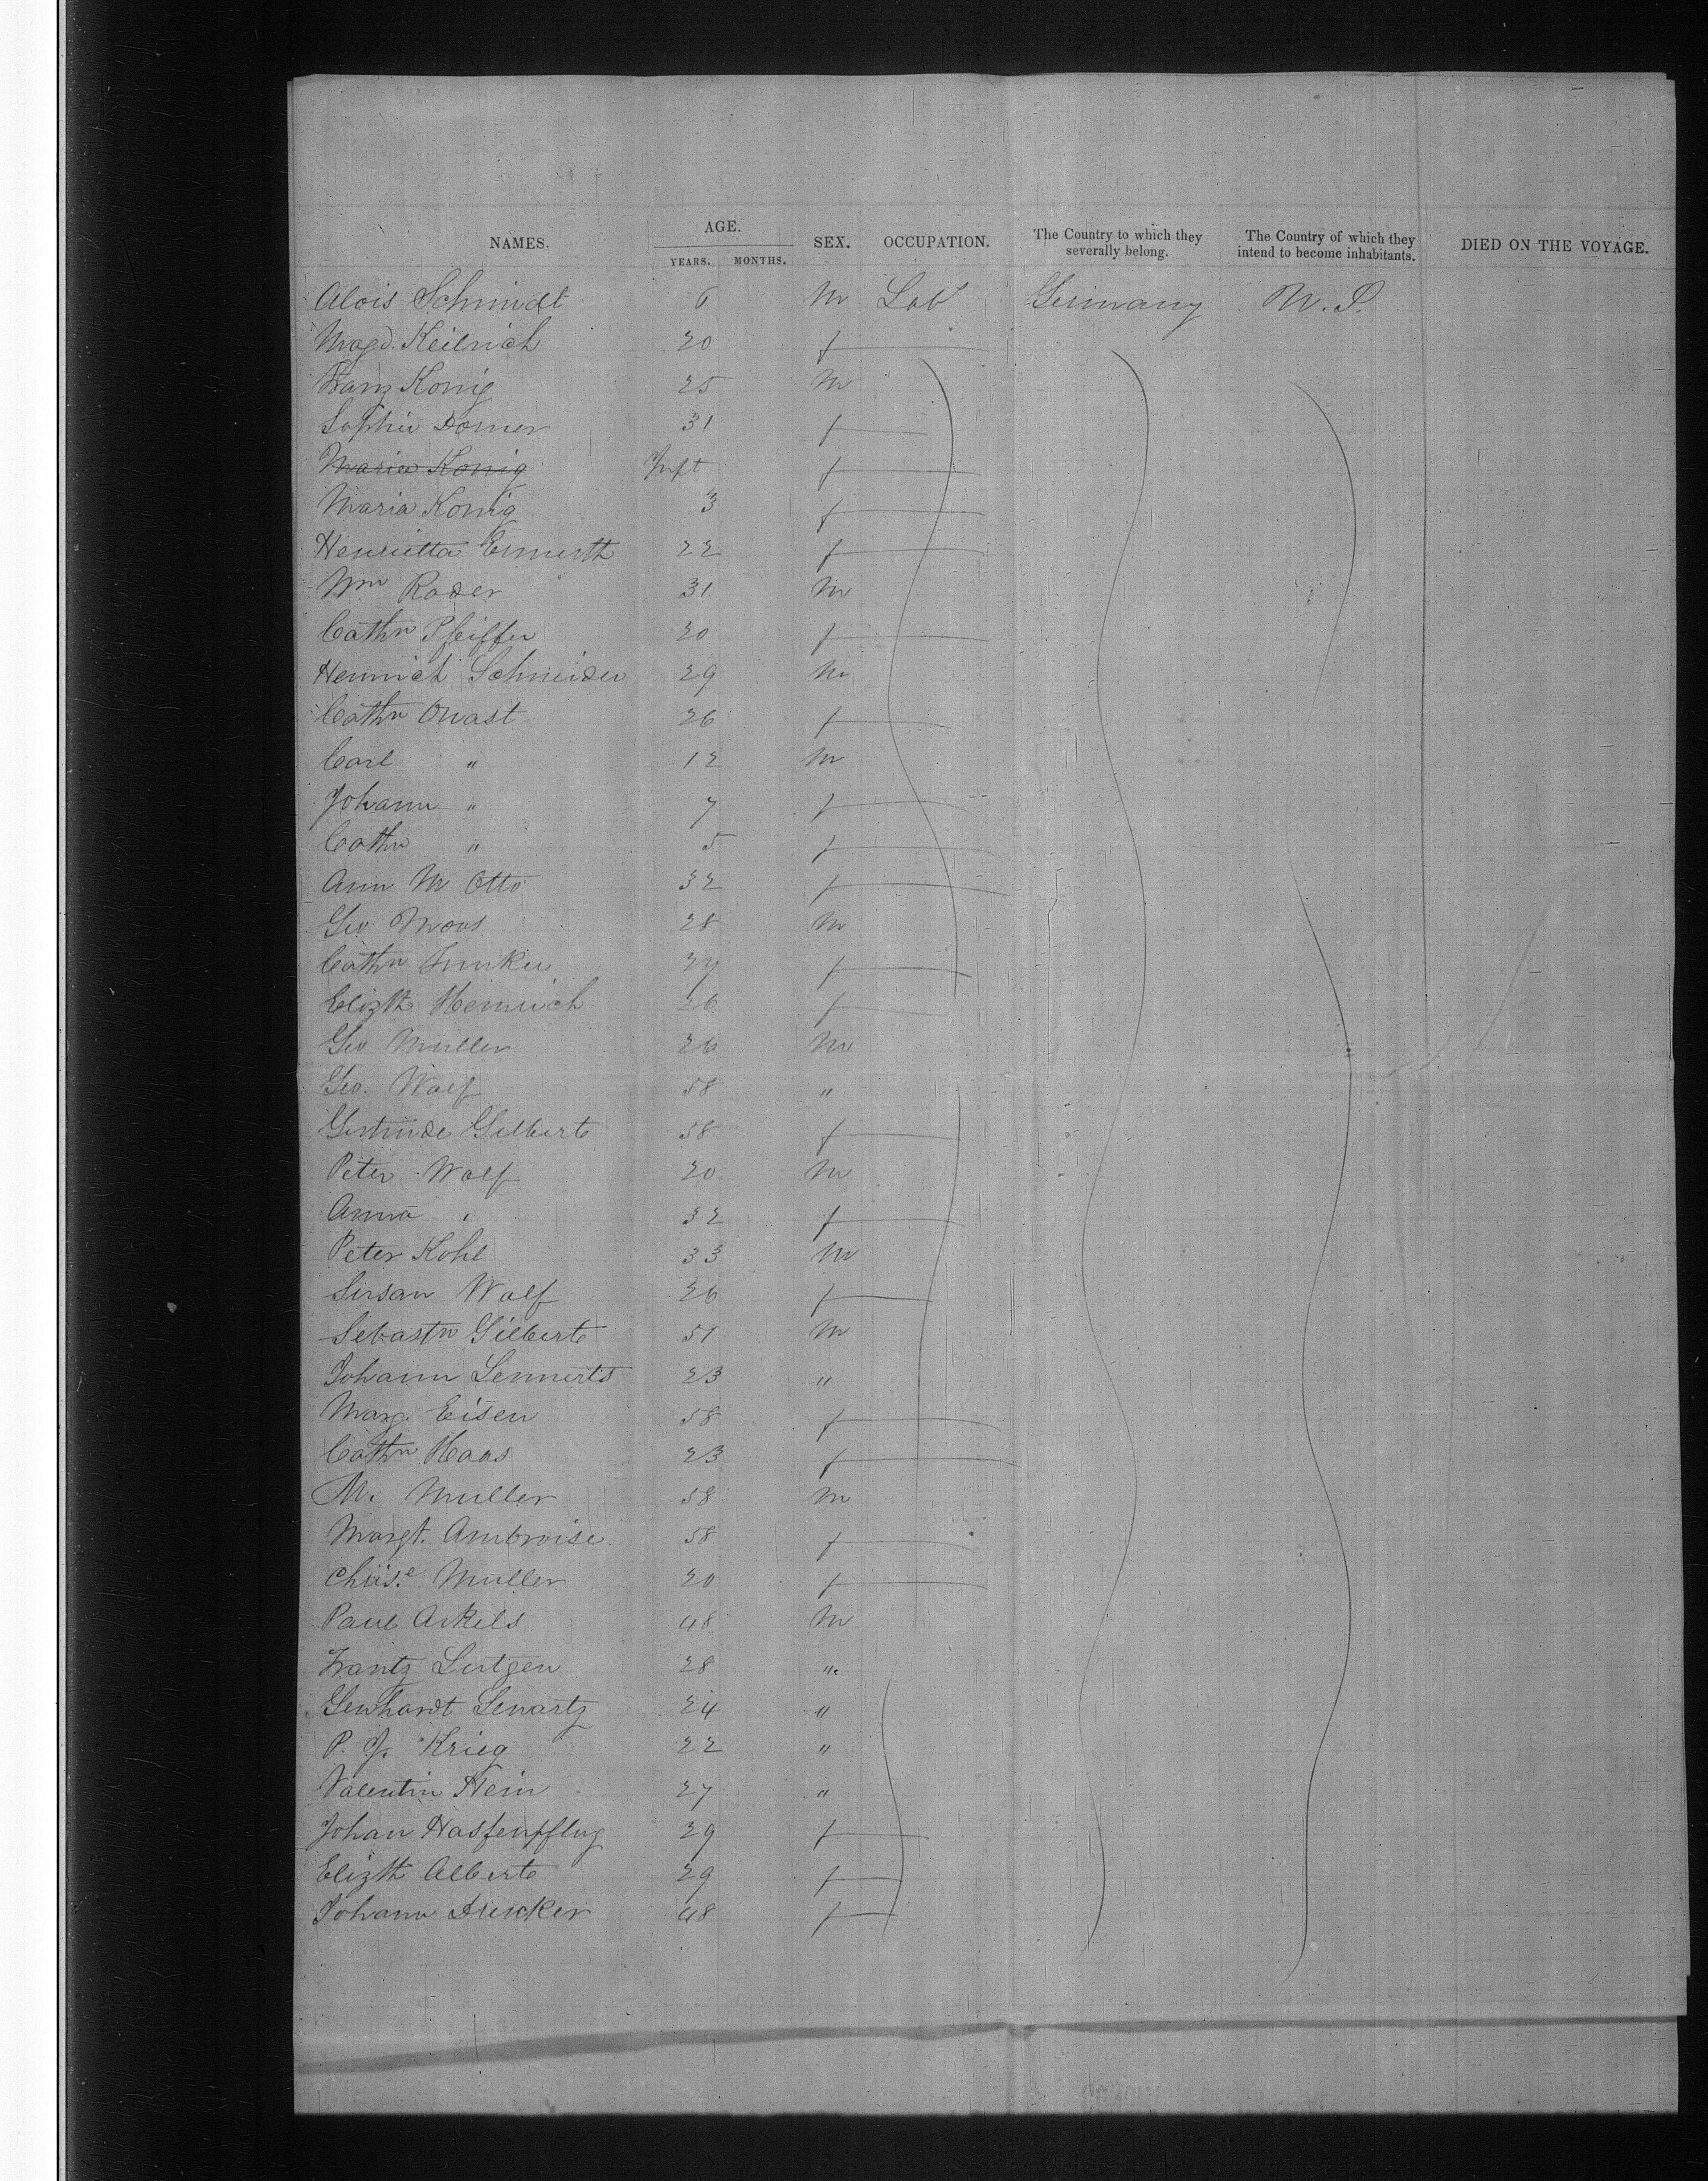 NAMES. AGE. YEARS. MONTHS. SEX. OCCUPATION. The Country to which they severally belong. The Country of which they intend to become inhabitants. DIED ON THE VOYAGE.
Alois Schmidt 6 M Lab Germany U.S.
Magd. Keilrich 20 f
Franz Konig 25 M
Sophie Dorner 31 f
Maria Konig Inft f
Maria Konig 3 f
Henrietta 22 f
Wm Rader 31 M
Cathn Pfeiffer 20 f
Heinrich Schneider 29 M
Cathn Quast 26 f
Carl " 12 M
Johann " 7 f
Cathn " 5 f
Ann M Otto 32 f
Geo Moos 28 M
Cathn Junker f
Elizth Heinrich 26 f
Geo Muller 26 M
Geo. Wolf 58 "
Gertrude Gilberts 58 f
Peter Wolf 20 M
Anna " 32 f
Peter Kohl 33 M
Susan Wolf 26 f
Sebastn Gilberts 51 M
Johann Lennerts 23 "
Marg. Eisen 58 f
Cathn Haas 23 f
M. Muller 58 M
Margt. Ambroise 58 f
Chrise Muller 20 f
Paul Arkels 48 M
Frantz Lutgen 28 "
Genhardt Lenartz 24 "
P. J. Krieg 22 "
Valentin Hein 27 "
Johan Hassenpflug 29 f
Elizth Alberts 29 f
Johann Ducker 48 f